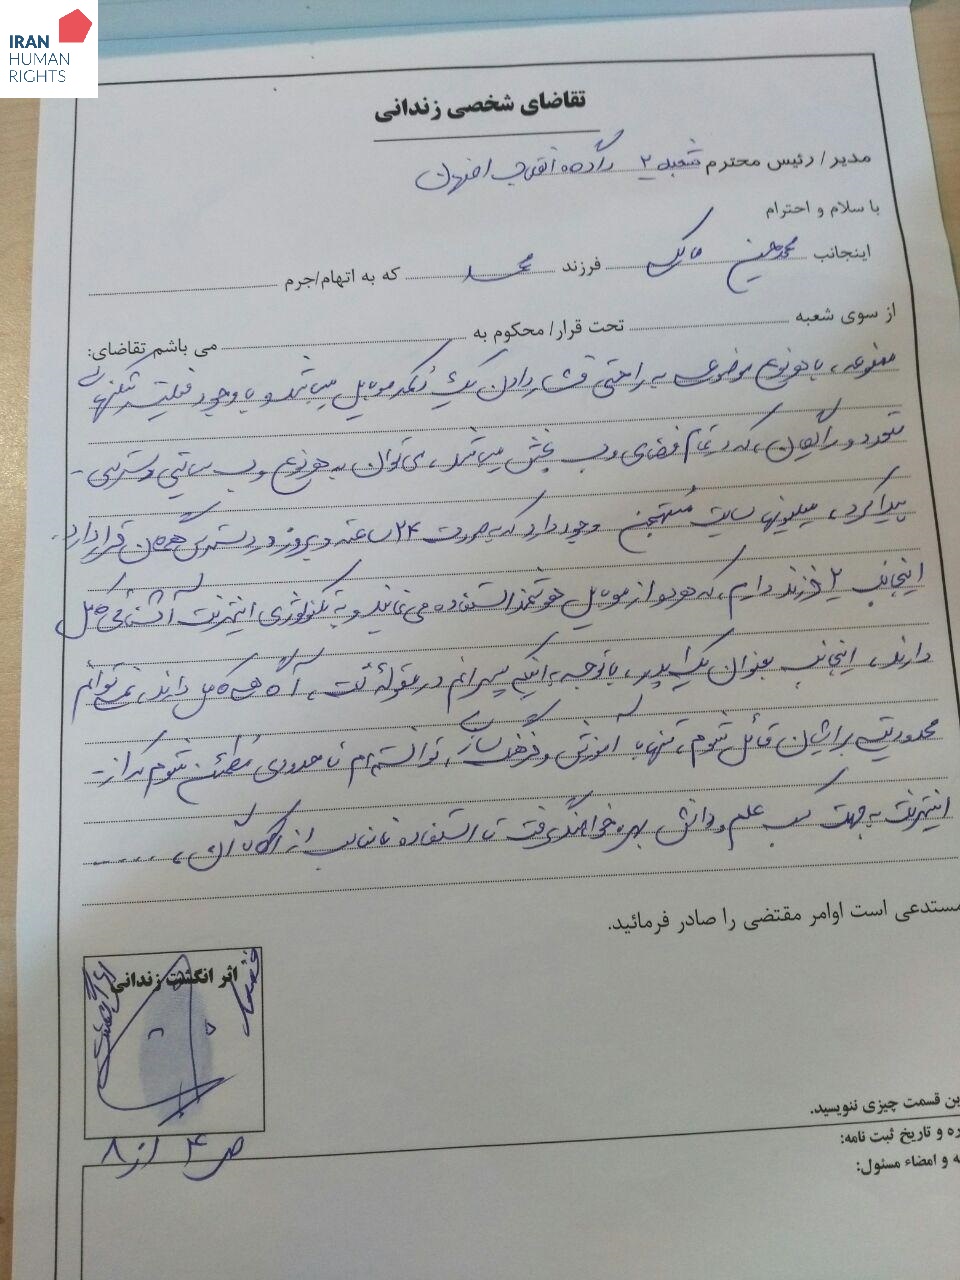 IRAN
HUMAN
RIGHTS
تقاضای شخصی زندانی
مدیر / رئیس محترم شعبه ۲ دادگاه انقلاب اصفهان
با سلام و احترام
اینجانب محمدحسین مالک فرزند محمد که به اتهام/جرم
از سوی شعبه تحت قرار/ محکوم به می باشم تقاضای:
ممنوعه، با هر نوع موضوعی به راحتی فشار دادن یک دُکمه موبایل میباشد و با وجود فیلتر شکنهای
متعدد و رایگان، که در تمام فضای وب پخش میباشد، می توان به هر نوع وب سایتی دسترسی -
پیدا کرد، میلیونها سایت مُستهجن وجود دارد که بصورت ۲۴ ساعته و بروز در دسترس همگان قرار دارد.
اینجانب ۲ فرزند دارم، که هر دو از موبایل هوشمند استفاده می نمایند و به تکنولوژی اینترنت آشنائی کامل
دارند، اینجانب بعنوان یک پدر، با توجه به اینکه پسرانم در مقولهٔ نت، آگاهی کامل دارند، نمی توانم
محدودیتی برایشان قائل شوم، تنها با آموزش و فرهنگ سازی، توانسته ام تا حدودی مُطمئن شوم که از -
اینترنت به جهت کسب علم و دانش بهره خواهند گرفت تا استفاده نامناسب از امکانات آن، .....
مستدعی است اوامر مقتضی را صادر فرمائید.
اثر انگشت زندانی
ص ۴ از ۸
ین قسمت چیزی ننویسید.
ره و تاریخ ثبت نامه:
ه و امضاء مسئول: